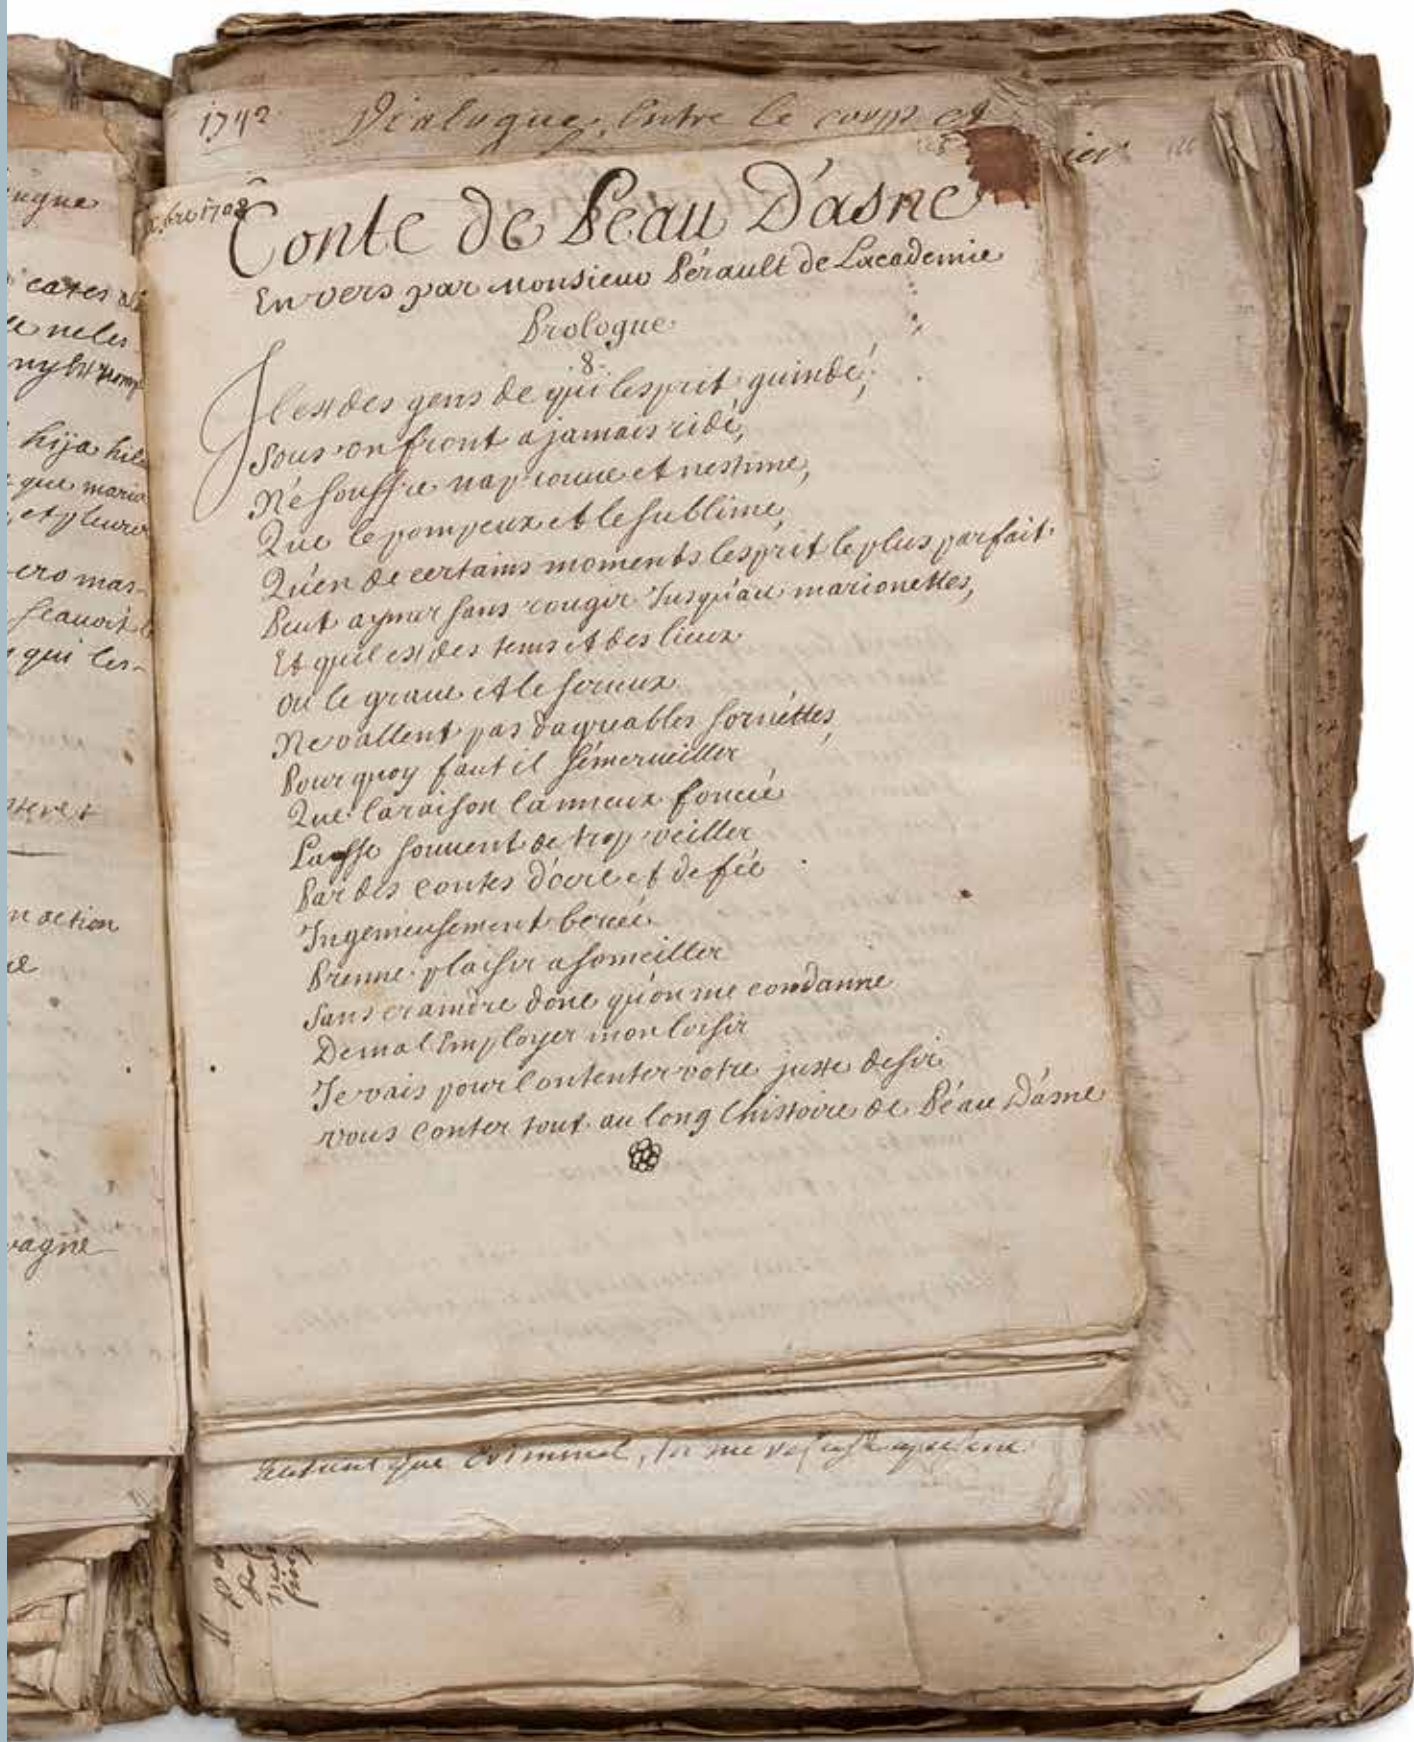 1742 Dialogue, Entre le corps et
bre 1708
Conte de Peau D'asne
En vers par Monsieur Pérault de Lacademie
Prologue
8
Il est des gens de qui lesprit guindé,
Sous un front a jamais ridé,
Ne souffre napprouue et nestime,
Que le pompeux et le sublime,
Qu'en de certains moments lesprit le plus parfait
Peut aymer sans rougir Jusqu'au marionettes,
Et quil est des tems et des lieux
ou le graue et le serieux
Ne vallent pas dagreables sornéttes,
Pour quoy faut il sémerueiller
Que la raison la mieux sencée
Lasse souuent de trop veiller
Par des contes d'ocre et de fée
Ingenieusement bercée
Prenne plaisir a someiller
Sans craindre donc qu'on me condanne
De mal Employer mon loisir
Je vais pour Contenter votre juste desir
vous conter tout au long lhistoire de Péau D'asne
que Criminel,
ingne
cates
neles
hija
que maria
et pleurer
ero mas-
scauoit
qui les-
n action
vagne